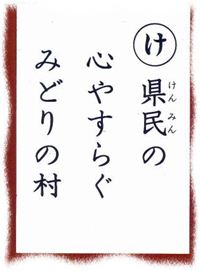 け
県民の
けんみん
心やすらぐ
みどりの村